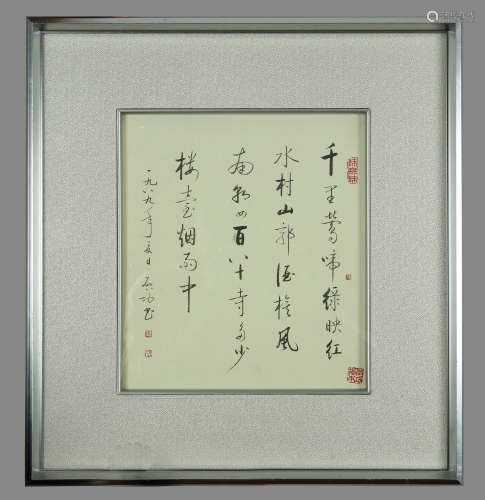 千里莺啼绿映红
水村山郭酒旗风
南朝四百八十寺多少
楼臺烟雨中
一九八九年夏日 启功书